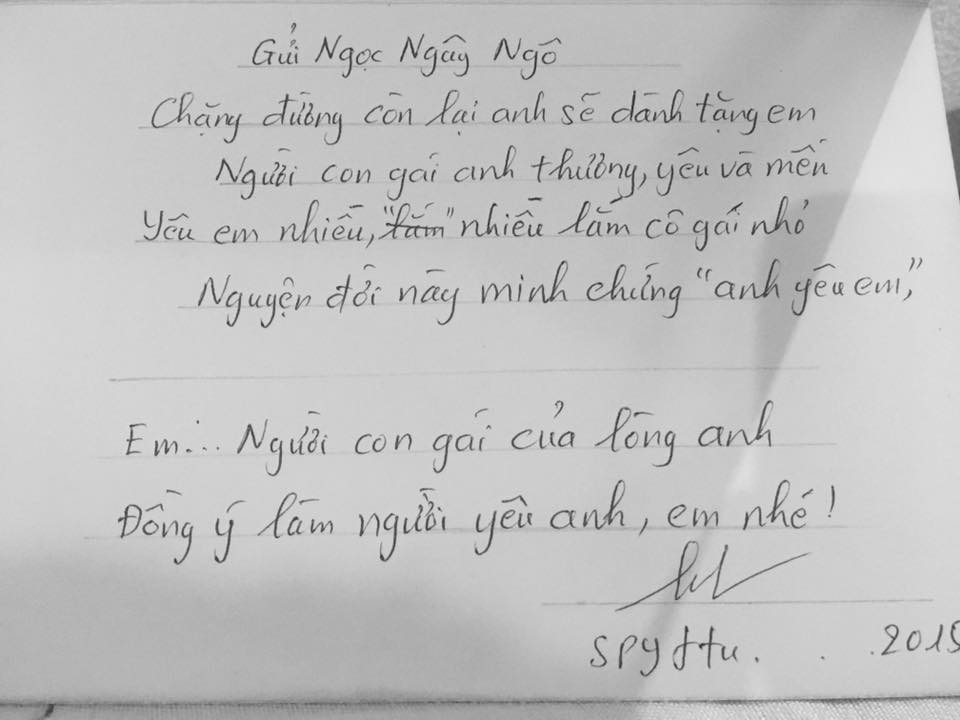 Gửi Ngọc Ngây Ngô
Chặng đường còn lại anh sẽ dành tặng em
Người con gái anh thương, yêu và mến
Yêu em nhiều, "lắm" nhiều lắm cô gái nhỏ
Nguyện đời này minh chứng "anh yêu em,"
Em... Người con gái của lòng anh
Đồng ý làm người yêu anh, em nhé!
SPYttu. . .2015